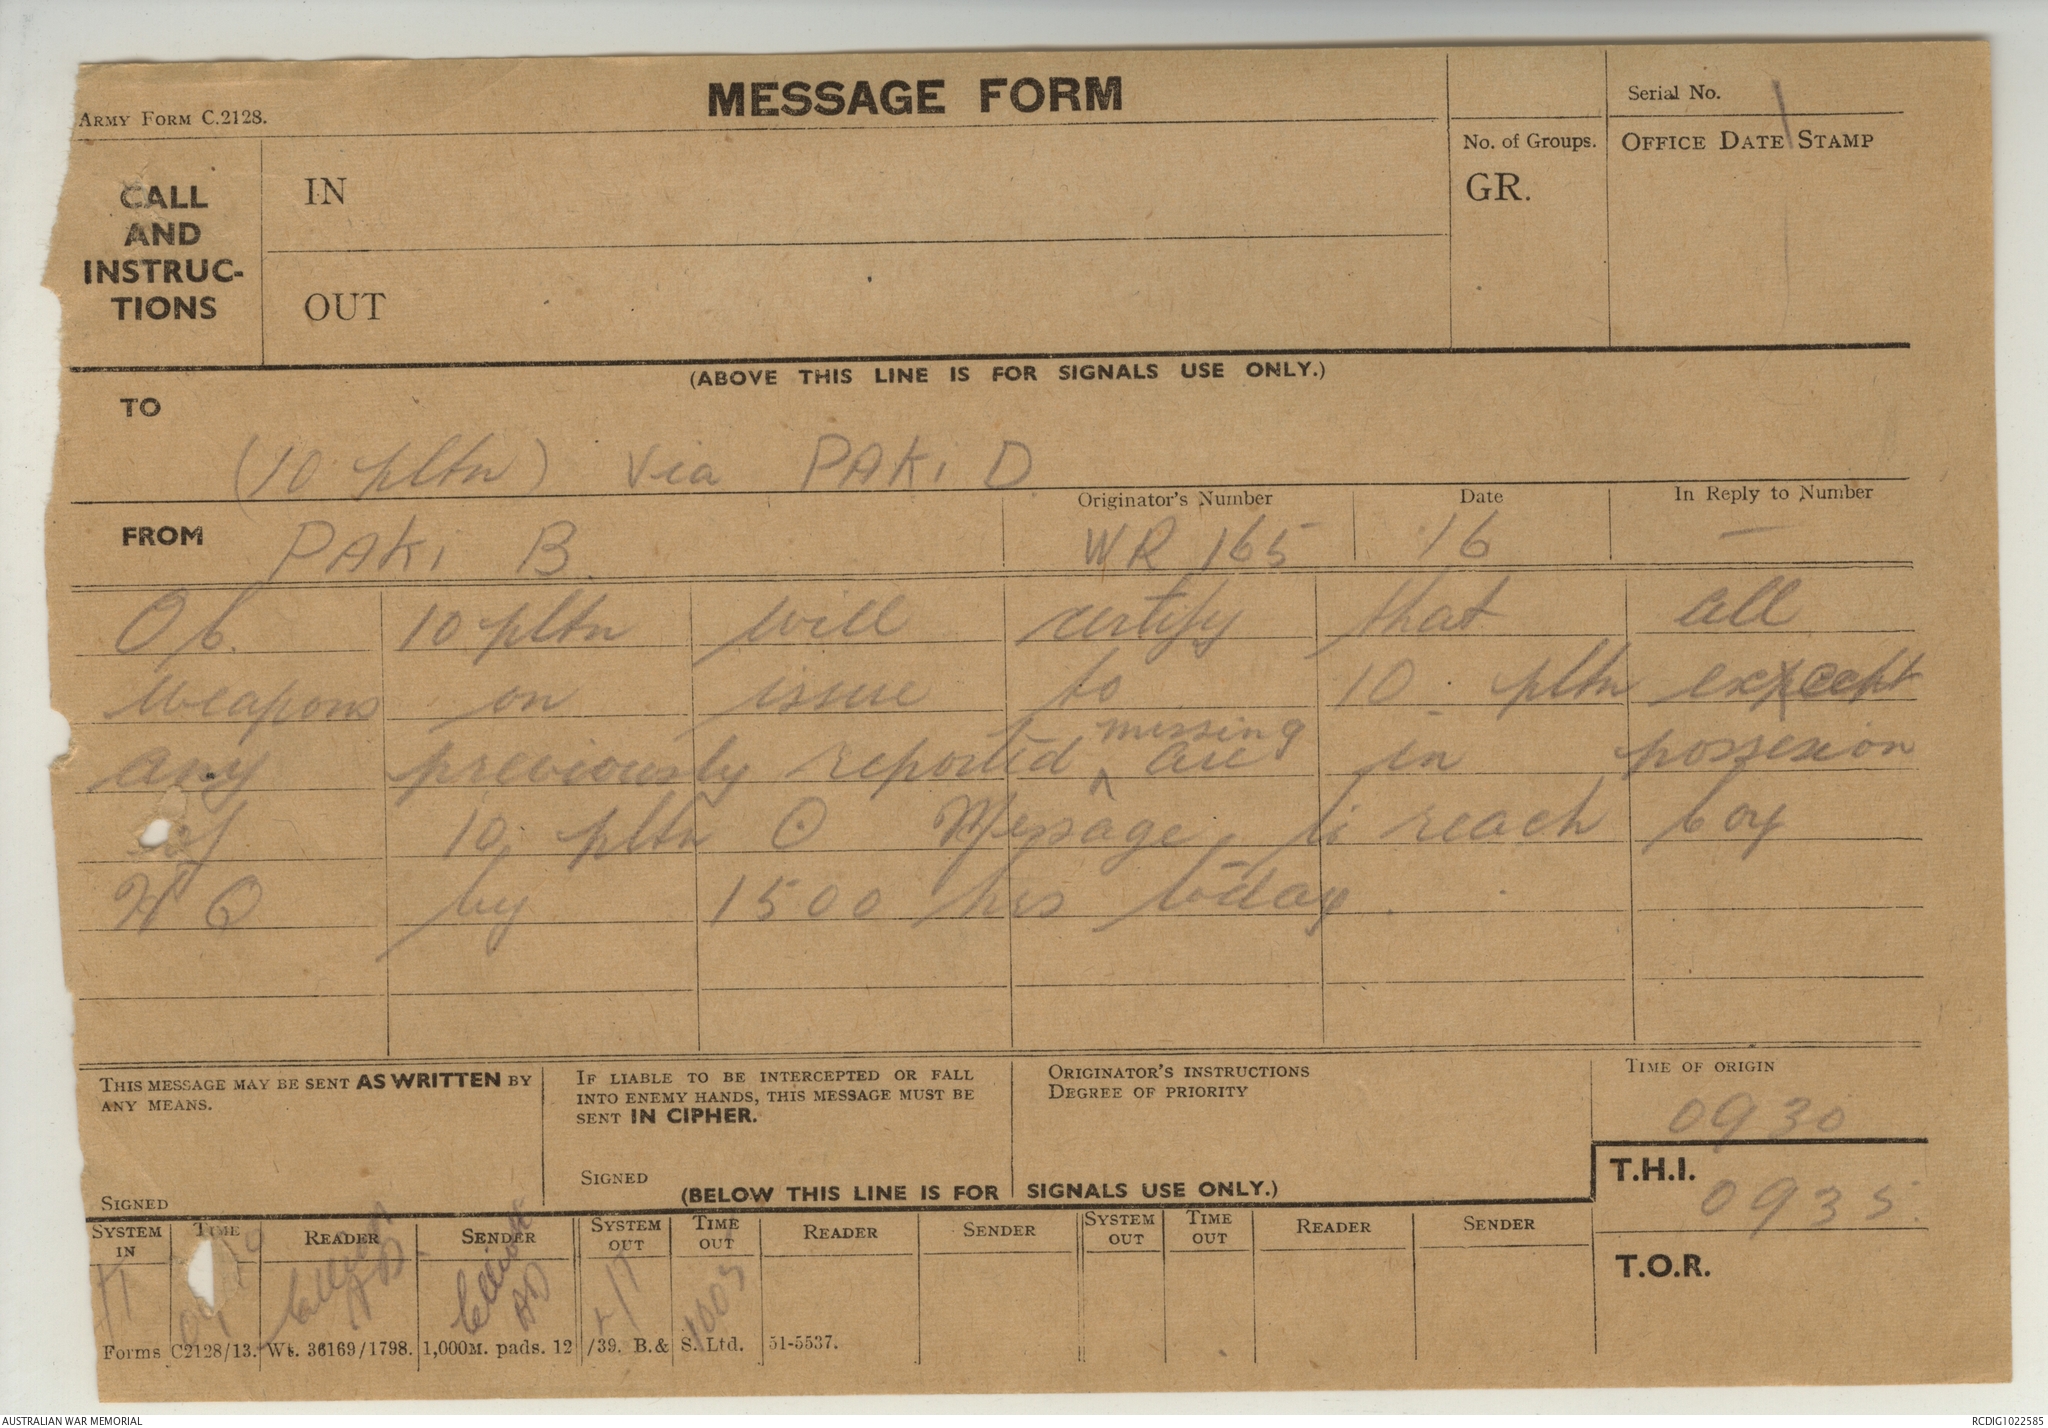 MESSAGE FORM
Army Form C.2128.
Serial No.
No. of Groups.
OFFICE DATE STAMP
CALL AND INSTRUC-TIONS
IN
GR.
OUT
(ABOVE THIS LINE IS FOR SIGNALS USE ONLY.)
TO
(10 pltn) via PAKI D.
Originator's Number
Date
In Reply to Number
FROM PAKI B. WR 165 16 —
10 pltn will certify that all
weapons on issue to 10 pltn except
any previously reported missing are in possession
of 10 pltn O Message to reach Coy
H Q by 1500 hrs today.
THIS MESSAGE MAY BE SENT AS WRITTEN BY ANY MEANS.
SIGNED
IF LIABLE TO BE INTERCEPTED OR FALL INTO ENEMY HANDS, THIS MESSAGE MUST BE SENT IN CIPHER.
SIGNED
ORIGINATOR'S INSTRUCTIONS
DEGREE OF PRIORITY
TIME OF ORIGIN
0930
T.H.I.
0935.
T.O.R.
(BELOW THIS LINE IS FOR SIGNALS USE ONLY.)
SYSTEM IN TIME READER SENDER SYSTEM OUT TIME OUT READER SENDER SYSTEM OUT TIME OUT READER SENDER
Forms C2128/13. Wt. 36169/1798. 1,000M. pads. 12/39. B.& S. Ltd. 51-5537.
AUSTRALIAN WAR MEMORIAL
RCDIG1022585